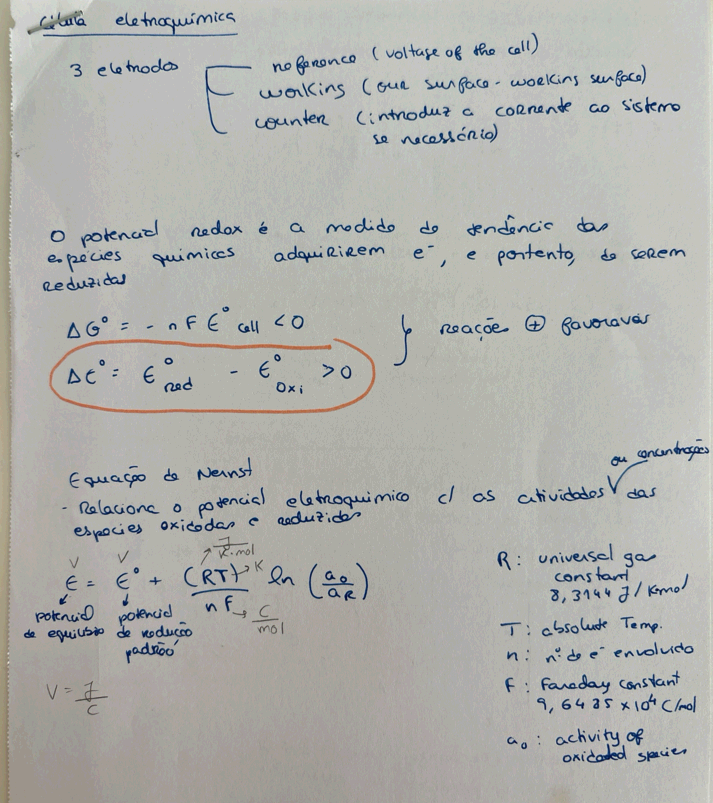 Célula eletroquímica
3 eletrodos
reference (voltage of the cell)
working (our surface - working surface)
counter (introduz a corrente ao sistema
se necessário)
O potencial redox é a medida da tendência das
espécies químicas adquirirem e⁻, e portanto, de serem
reduzidas
ΔG° = - n F ϵ° cell < 0
Δϵ° = ϵ° red - ϵ° oxi > 0
} reações ⊕ favoráveis
Equação de Nernst
ou concentrações
- Relaciona o potencial eletroquímico c/ as atividades das
espécies oxidadas e reduzidas
V V J/K·mol
ϵ = ϵ° + (RT)/nF ln (a₀/a_R)
K
C/mol
potencial de equilíbrio
potencial de redução padrão
V = J/C
R: universal gas
constant
8,3144 J/Kmol
T: absolute Temp.
n: nº de e⁻ envolvido
F: Faraday constant
9,6485 x10⁴ C/mol
a₀: activity of
oxidated species